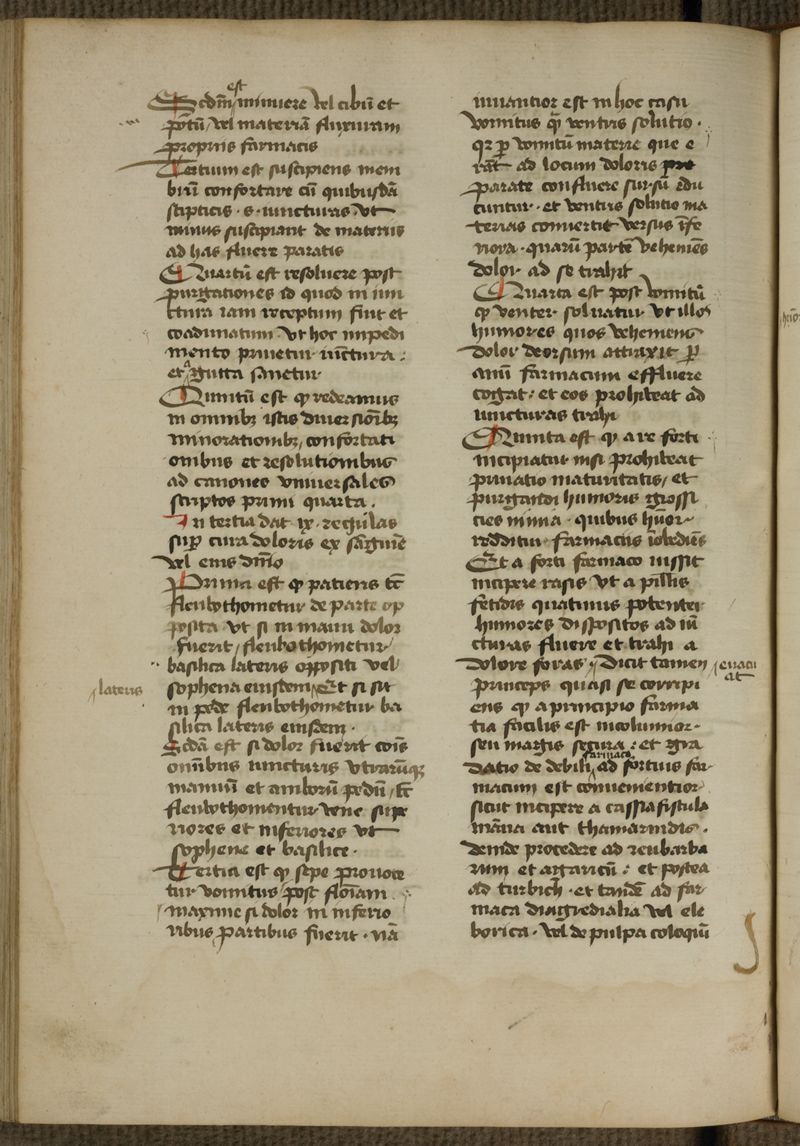 est
Scdm minuere vel cibū et
potū vel materiā fluxuram
proprijs farmacis
Tertium est suscipiens mem
brū confortare cū quibusdā
stipticis · s · iuncturas vt
minus suscipiant de materijs
ad has fluere paratis
Quartū est resoluere post
purgationes id quod in iun
ctura iam receptum fuit et
coadunatum vt hoc impedi
mento priuetur iūctura :
et gutta sanetur
Quintū est qp redeamus
in omnibꝫ istis diuersiōibꝫ
minorationibꝫ confortati
onibus et resolutionibus
ad canones vniuersales
scriptos primi quarta .
In tertia dat ix regulas
sup cura doloris ex sāguīe
vel eius dmīo
Prima est qp patiens tc̄
fleubothometur de parte op
posita vt si in manu dolor
fuerit / fleubothometur
basilica lateris oppositi vel
lateris
sophena eiusdem Et si sit
in pede fleubothometur ba
silica lateris eiusdem .
Scdā est si dolor fuerit cōis
omībus iuncturis vtrarūqꝫ
manuū et amborū pedū / tc̄
fleubothomentur vene supe
riores et inferiores vt
sophene et basilice .
Tertia est qp sepe prouoce
tur vomitus post floīam .
maxime si dolor in inferio
ribus partibus fuerit . nā
iuuantior est in hoc casu
vomitus qm̄ ventris solutio .
qꝛ p vomitū materie que e
rāt ad locum doloris
parate confluere sursū edu
cuntur . et ventris solutio ma
terias conuertit versus īfe
riora . quarū partē vehemēs
dolor ad se trahit
Quarta est post vomitū
qp venter soluatur vt illos
humores quos vehemens
dolor deorsum attraxit p
anū farmacum effluere
cogat : et eos prohibeat ad
iuncturas trahi
Quinta est qp a re forti
incipiatur nisi prohibeat
priuatio maturitatis / et
purgandi humoris grossi
cies nimia . quibus hūor
redditur farmacijs īobediēs
Et a forti farmaco iussit
incipere rasis vt a pillis
fetidis quatinus potenter
humores dispositos ad iū
cturas fluere et trahi a
dolore foras Dicit tamen
euacu
at
princeps quasi se corripi
ens qp a principio farma
tia facilis est incolumior
seu magis segura : et gra
farmaco
datio de debili ad fortius far
macum est conuenientior
sicut incipere a cassiafistula
māna aut thamarindis .
deinde procedere ad reubarba
rum et agaricū : et postea
ad turbich . et tandē ad far
maca diagredialia vel ele
borica . vel de pulpa coloqui